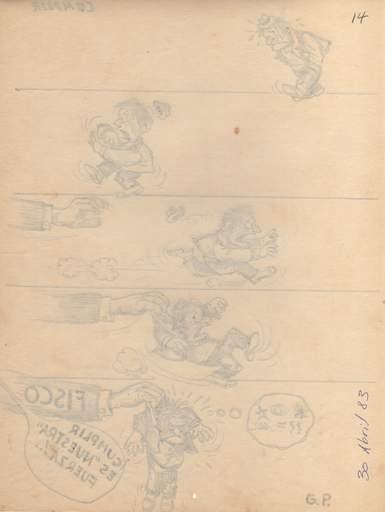 CUMPLIR
14
FISCO
¡CUMPLIR
ES "NUESTRA"
FUERZA"...
30 Abril 83
G.P.